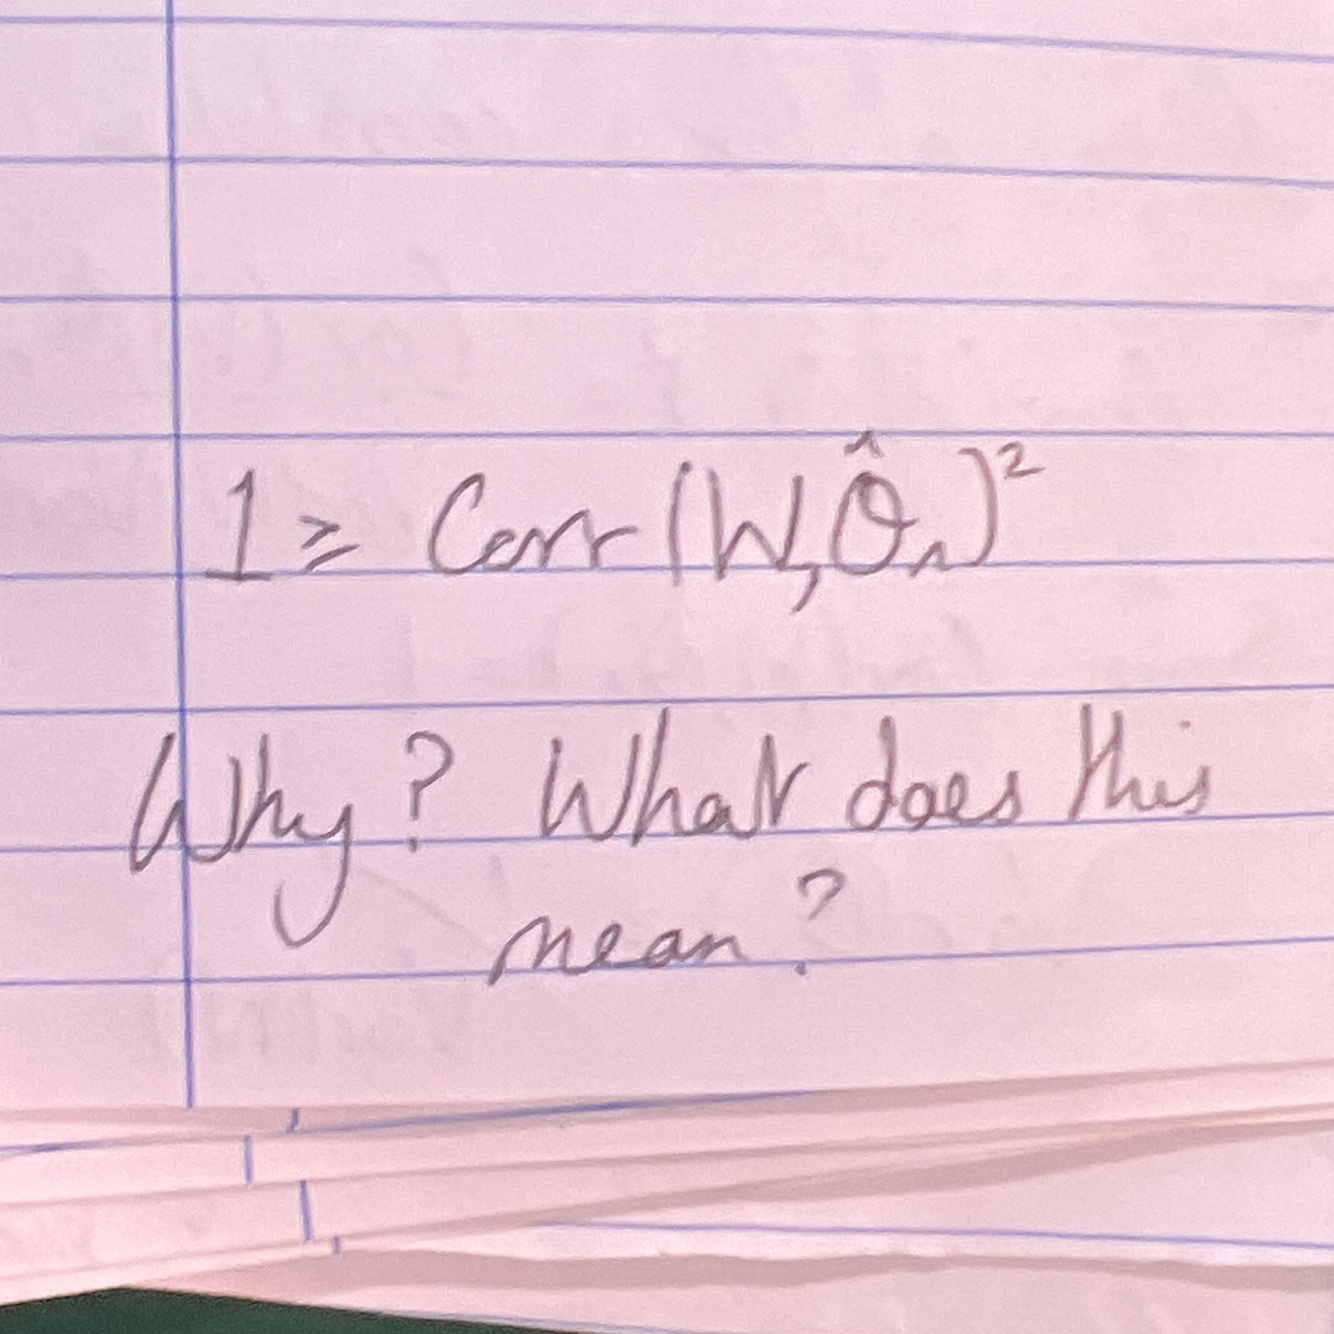 1 ≥ Corr(W, θ̂ₙ)²
Why? What does this
mean?